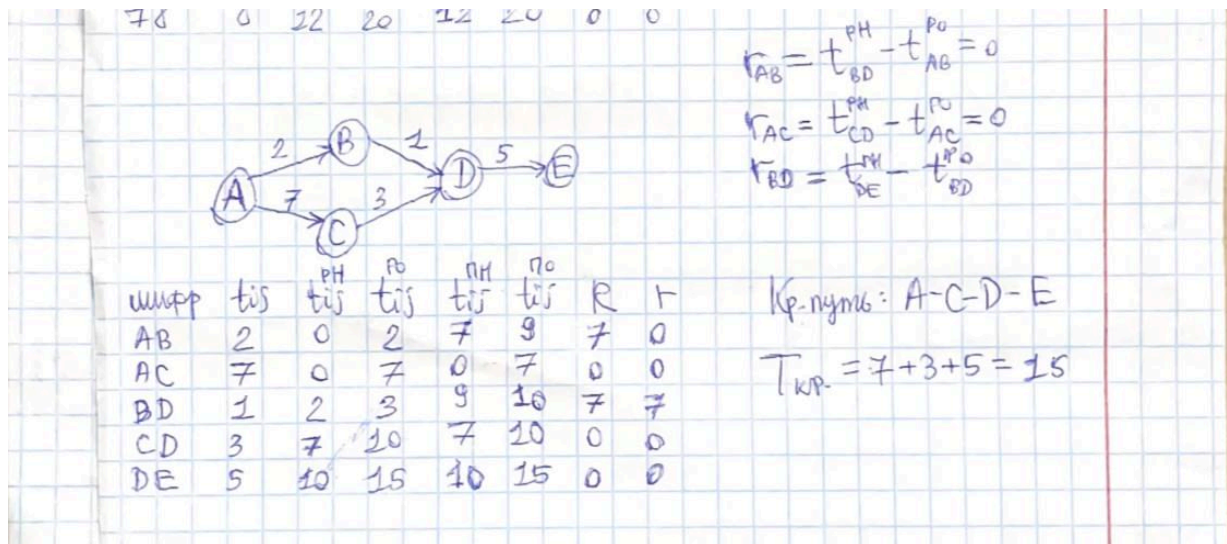 78 8 12 20 12 20 0 0
r_AB = t_BD^РН - t_AB^РО = 0
r_AC = t_CD^РН - t_AC^РО = 0
r_BD = t_DE^РН - t_BD^РО
2 B 1
A D 5 E
7 3
C
шифр tij tij^РН tij^РО tij^ПН tij^ПО R r
AB 2 0 2 7 9 7 0
AC 7 0 7 0 7 0 0
BD 1 2 3 9 10 7 7
CD 3 7 10 7 10 0 0
DE 5 10 15 10 15 0 0
Кр. путь: A-C-D-E
Tкр. = 7+3+5 = 15